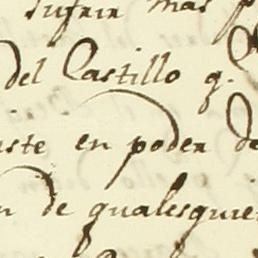 sufrir mas p
del Castillo q.
iste en poder de
n de qualesquie